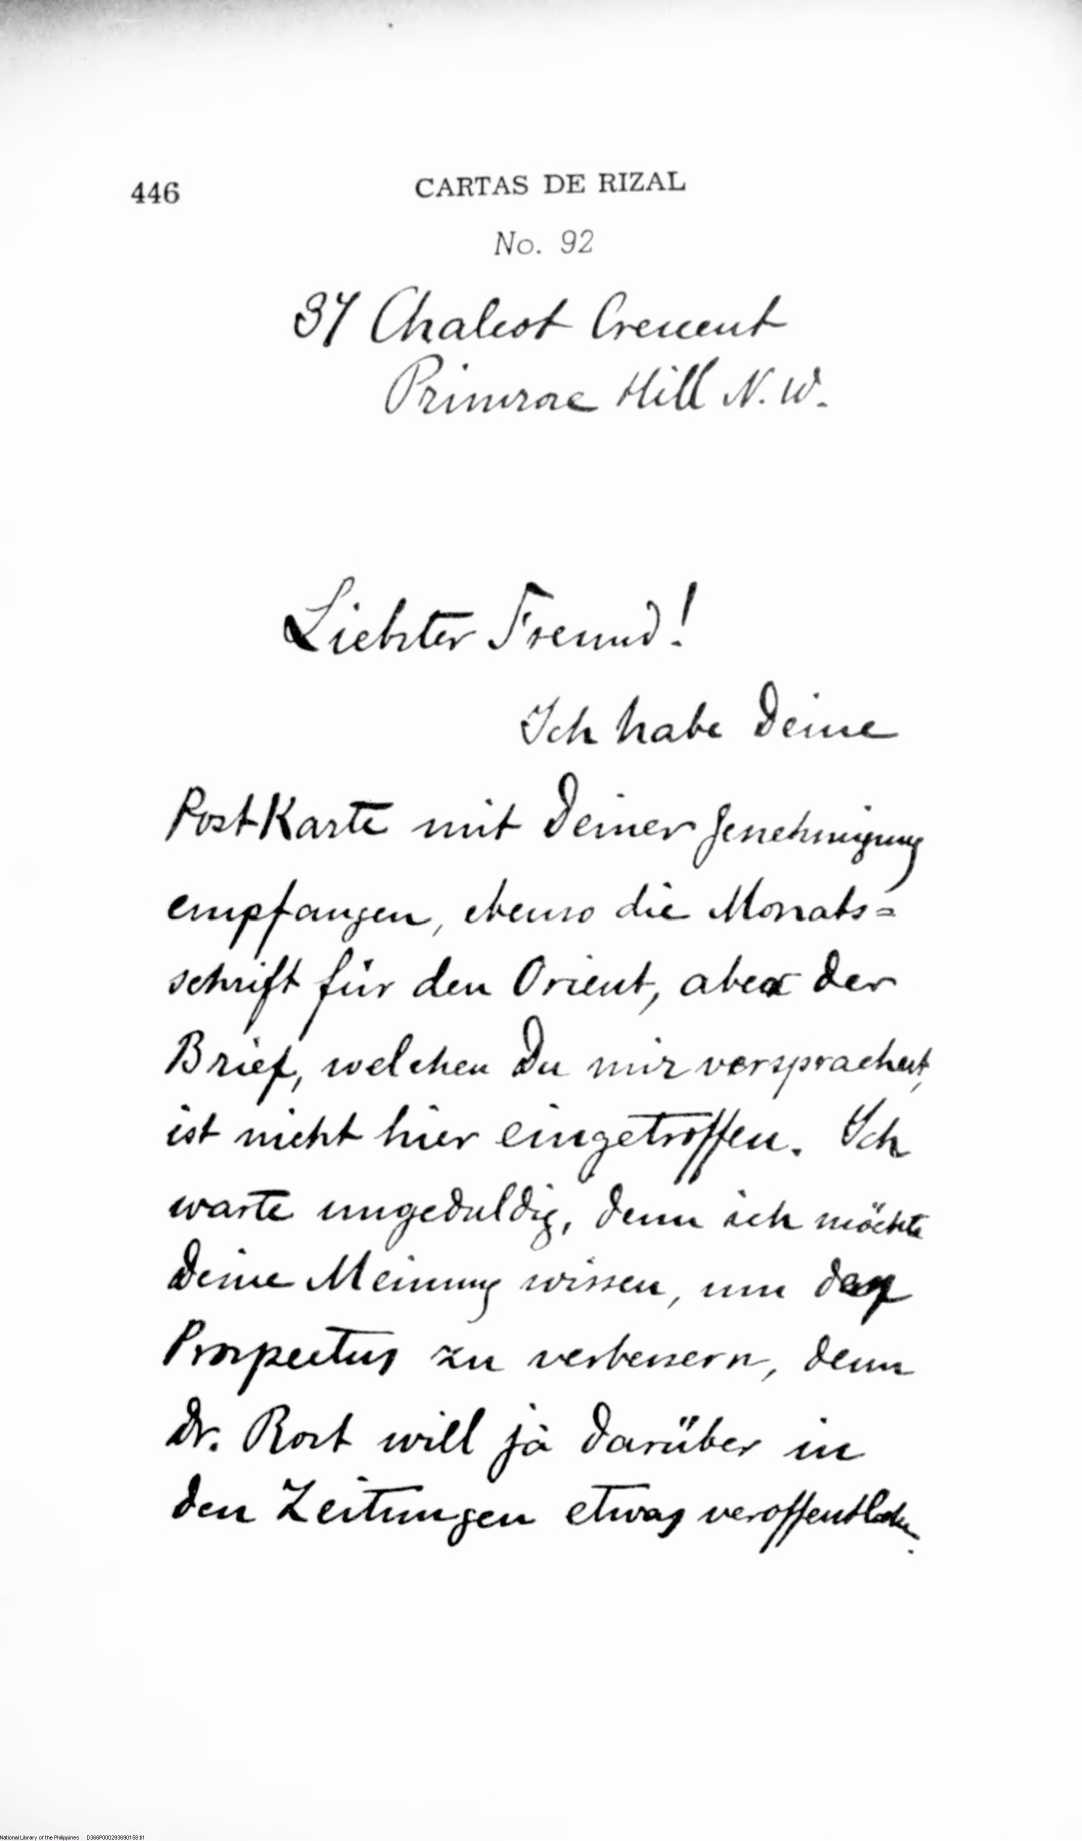 446 CARTAS DE RIZAL
No. 92
37 Chalcot Crescent
Primrose Hill N. W.
Liebster Freund!
Ich habe Deine
PostKarte mit Deiner Genehmigung
empfangen, ebenso die Monats=
schrift für den Orient, aber der
Brief, welchen Du mir versprachest,
ist nicht hier eingetroffen. Ich
warte ungeduldig, denn ich möchte
Deine Meinung wissen, um den
Prospectus zu verbessern, denn
Dr. Rost will ja darüber in
den Zeitungen etwas veroffentlichen.
National Library of the Philippines